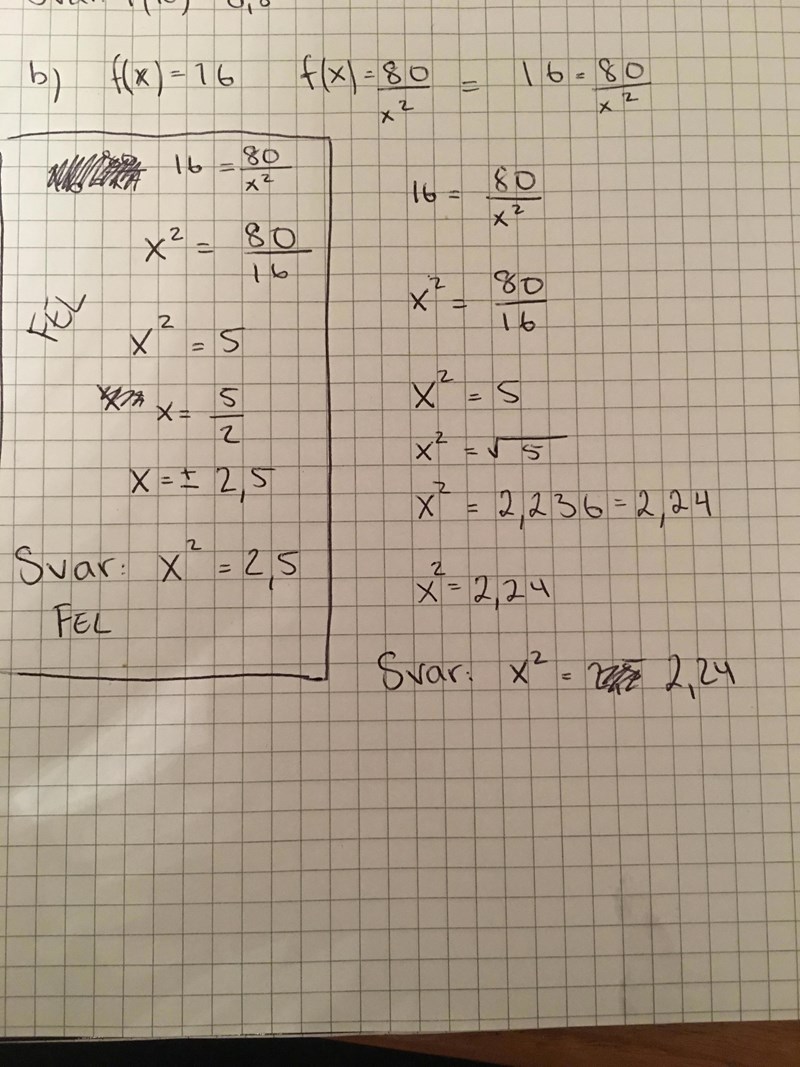 b) f(x) = 16 f(x) = 80/x² = 16 = 80/x²
16 = 80/x²
x² = 80/16
FEL
x² = 5
x = 5/2
x = ± 2,5
Svar: x² = 2,5
FEL
16 = 80/x²
x² = 80/16
x² = 5
x² = √5
x² = 2,236 = 2,24
x² = 2,24
Svar: x² = 2,24